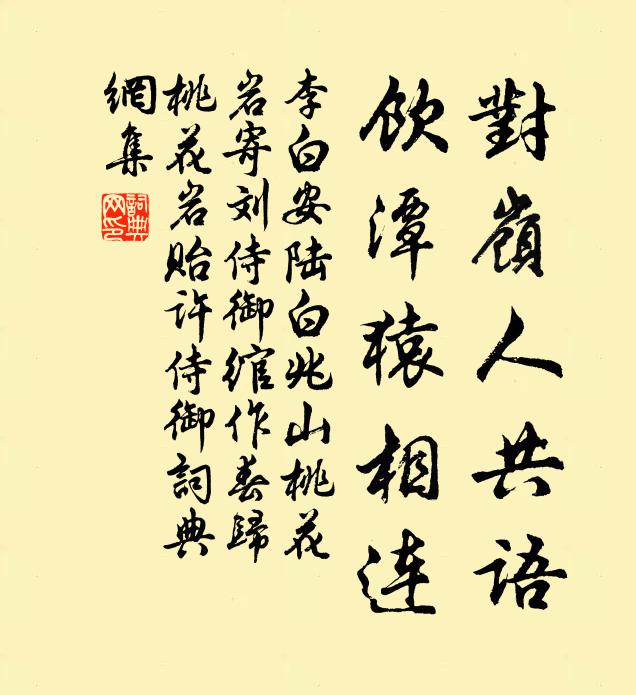 對嶺人共语
飲潭猿相連
李白安陆白兆山桃花
岩寄刘侍御綰作春歸
桃花岩貽许侍御詞典
網集
詞典
网印